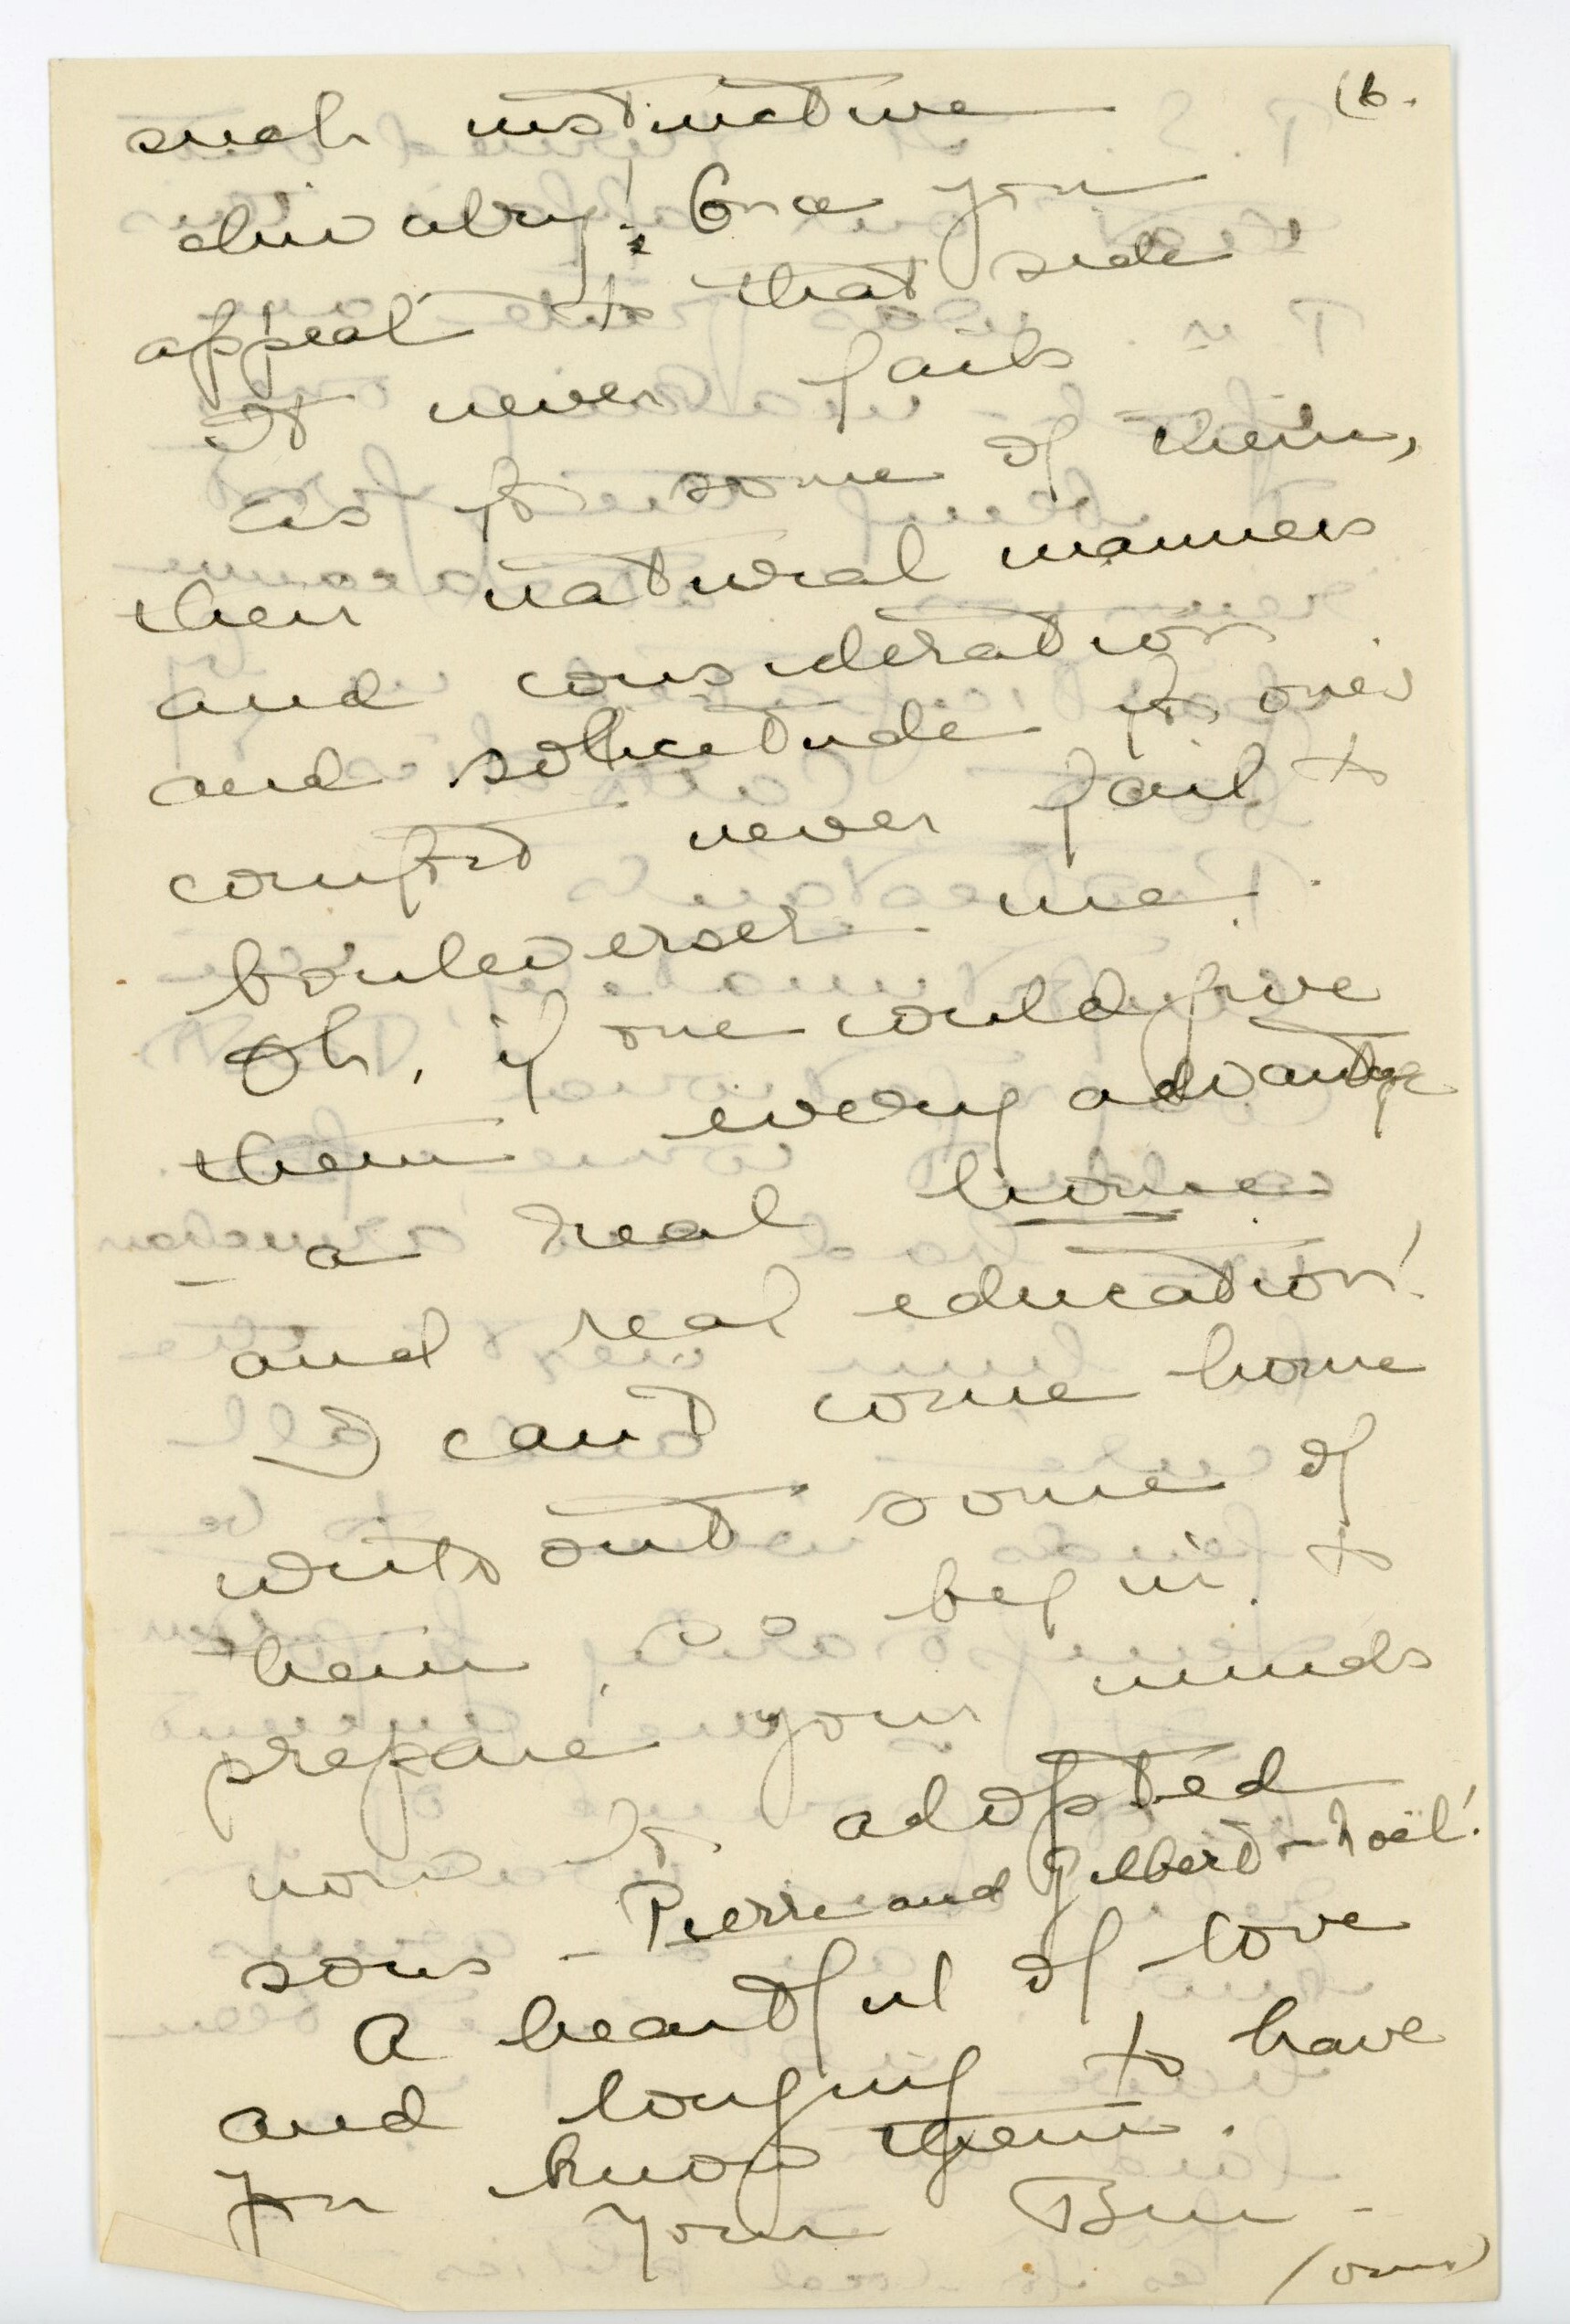 (6.
such instinctive
chivalry! Once you
appeal to that side
it never fails
as for some of them,
their natural manners
and consideration
and solicitude for one's
comfort never fail to
bouleverser me.
Oh, if one could give
them every advantage
a real home
and real education!
I can't come home
without some of
them. So begin to
prepare your minds
now for adopted
sons - Pierre and Gilbert-Noël!
A heartful of love
and longing to have
you know them.
Your Bun -
(over)